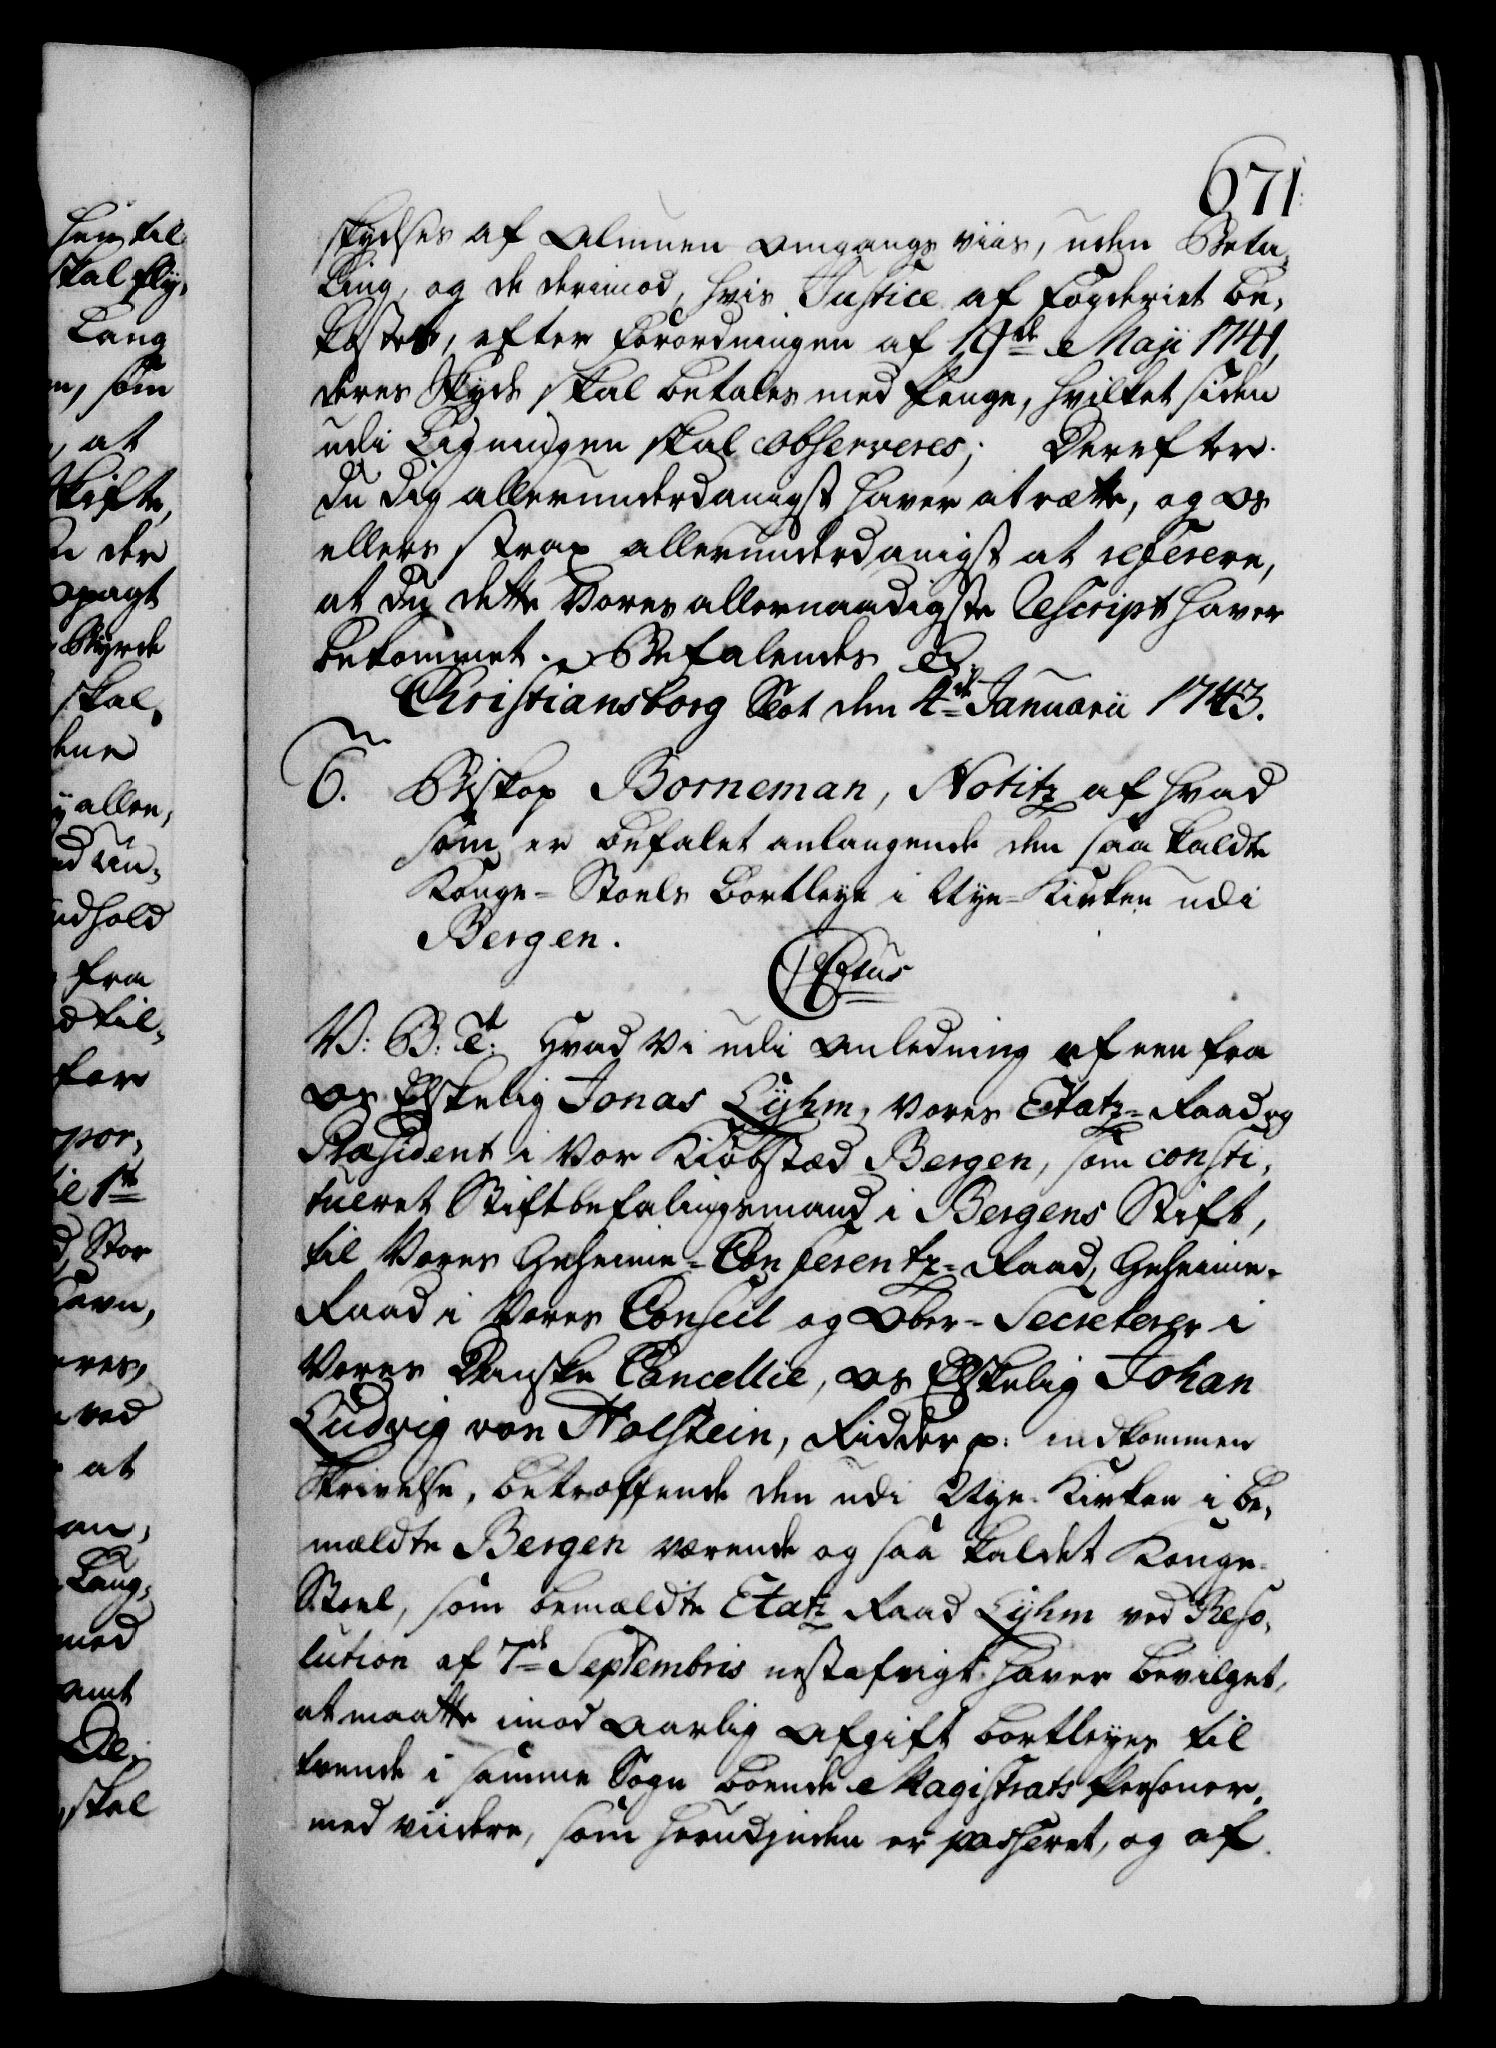 671.
skydses af Almuen omgangs viis, uden Beta,
ling, og de derimod, hvis Justice af Fogderiet be,
kostes, efter Forordningen af 19de Maji 1741,
deres Skyds skal betales med Penge, hvilket siden
udi Ligningen skal observeres; Derefter
du dig allerunderdanigst haver at rætte, og os
ellers strax allerunderdanigst at referere,
at dig dette Vores allernaadigste Rescript haver
bekommet. Befalendes &c.
Christiansborg Slot den 4de Januarii 1743.
6. Biskop Borneman, Notitz af hvad
som er befalet anlangende den saa kaldte
Konge-Stoels bortleye i Nye-Kirken udi
Bergen.
C 6tus
V: B: T: Hvad Vi udi Anledning af een fra
os Elskelig Jonas Lyhm, Vores Etatz-Raad og
Præsident i Vor Kiøbstæd Bergen, som consti,
tueret Stiftbefalingsmand i Bergens Stift,
til Vores Geheime-Conferentz-Raad, Geheime-
Raad i Vores Conseil og Ober-Secreterer i
Vores Danske Cancellie, os Elskelig Johan
Ludvig von Holstein, Ridder p: indkommen
Skrivelse, betreffende den udi Nye-Kirken i be,
mældte Bergen værende og saa kaldet Konge-
Stoel, som bemældte Etatz Raad Lyhm ved Reso,
lution af 7de Septembris nestafvigt haver bevilget,
at maatte imod aarlig Afgift bortleyes til
trende i samme Sogn boende Magistrats Personer,
med viidere, som herudjnden er passeret, og af